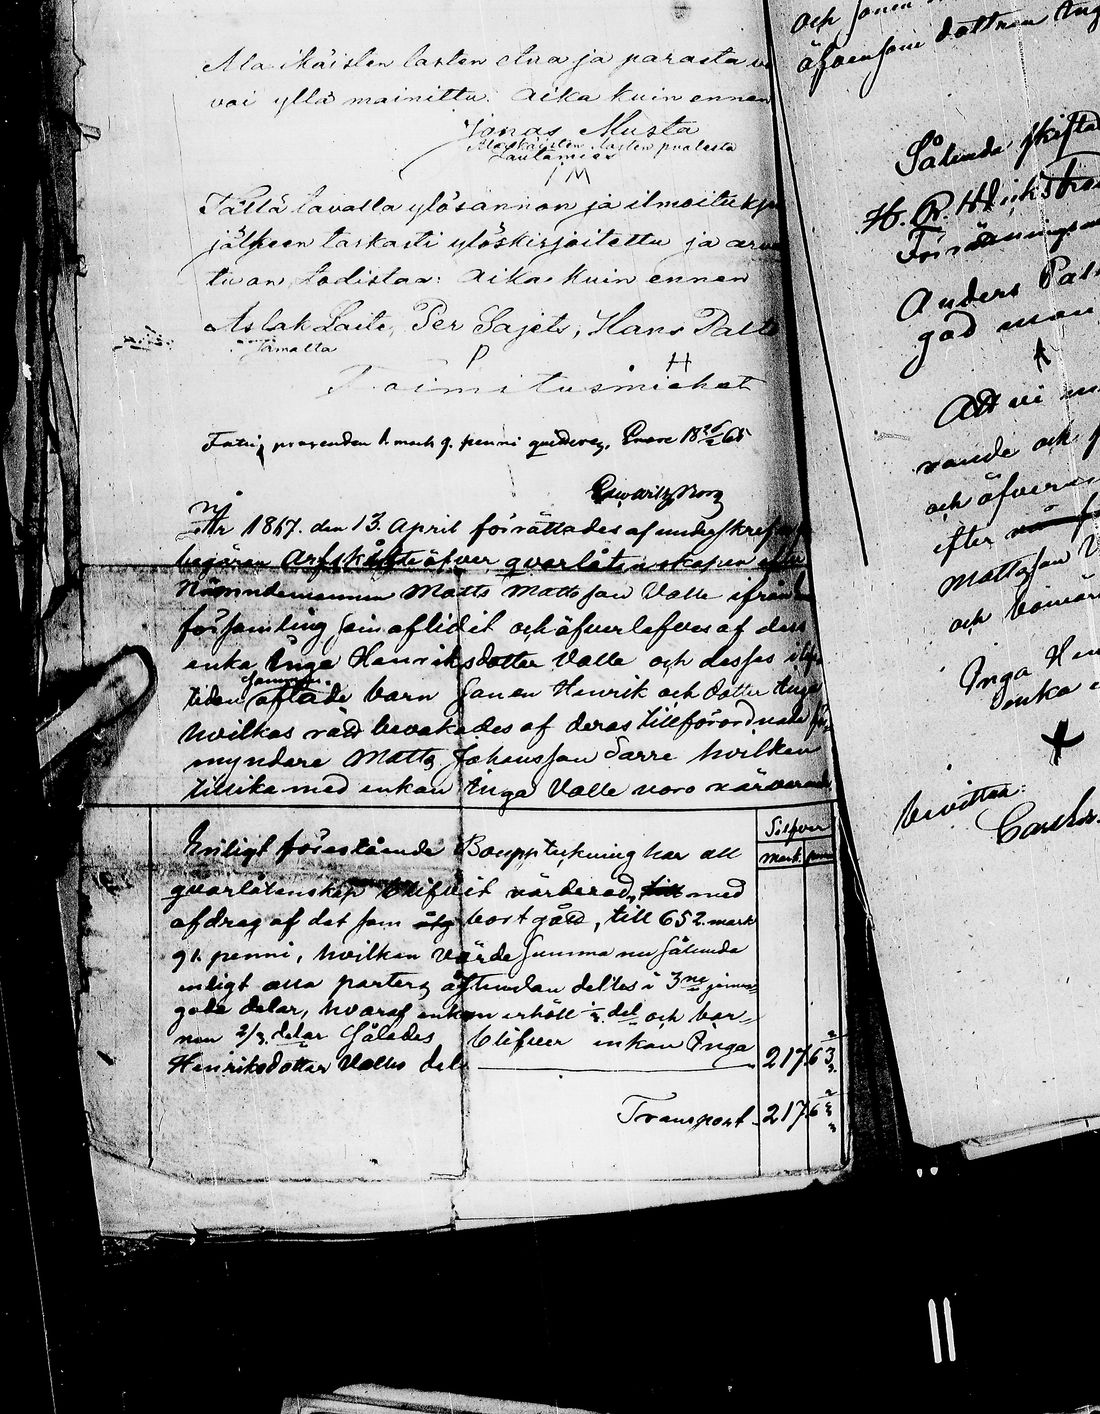 Ala ikäisten lasten etua ja parasta
voi yllä mainittu. Aika kuin ennen
Jonas Musta
Ala ikäisten lasten puolesta
Lautamies
I M
Tällä tavalla ylösannon ja ilmoituksen
jälkeen tarkasti ylöskirjoitettu ja arvo
tu on, todistaa: Aika kuin ennen
Aslak Laiti, Per Sajets, Hans Palto
Jomalla
P H
Toimitusmiehet
Fattig procenden 1. mark 9. penni qvitteras, Enare 18 68
År 1867. den 13. April förrättades af undreskrefne på
begäran Arfskifte öfver qvarlåtenskapen efter
Nämndemannen Matts Mattsson Valle ifrån
församling som aflidit och äfverlefves af dess
enka Inga Henriksdotter Valle och desses i
tiden sammen aflade barn sonen Henrik och dotter Inga
hvilkas rätt bevakades af deras tillförordnade för
myndare Matts Johansson Sarre hvilken
tillika med enkan Inga Valle voro närvarande
Silfver
Mark penni
Enligt förestående Bouppteckning har all
qvarlåtenskap blifvit värderad, till med
afdrag af det som bortgått, till 652. mark
91. penni, hvilken värde summa nu sålunda
enligt alla parters åstundan deltes i 3ne jemn
goda delar, hvaraf enkan erhöll 1/3 del och bar
nen 2/3 delar Således blifver enkan Inga
Henriksdotter Valles del 217 63
Transport 217 6
och sonen
äfvensom dottren Ing
Sålunda skiftad
H. R. Helickströ
Förrättningsm
Anders Palt
god man
A
Att vi
vande och
och äfver
efter
Mattsson V
och
Inga Hen
enka
Bevittnar:
Carl